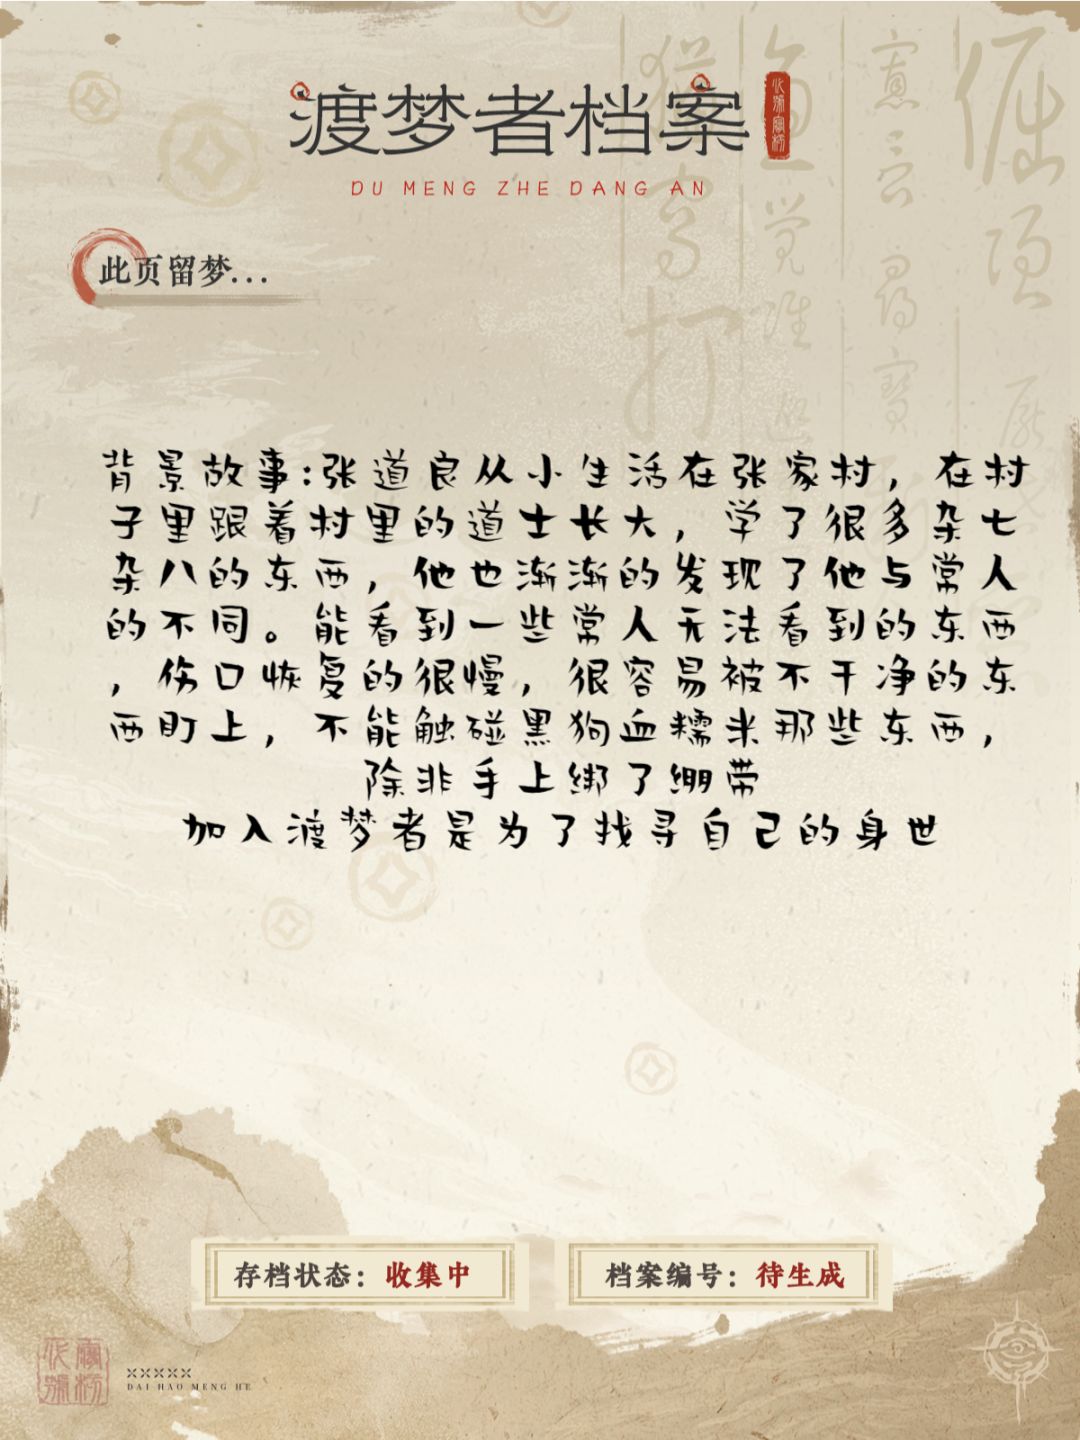 渡梦者档案
DU MENG ZHE DANG AN
此页留梦...
背景故事:张道良从小生活在张家村，在村
子里跟着村里的道士长大，学了很多杂七
杂八的东西，他也渐渐的发现了他与常人
的不同。能看到一些常人无法看到的东西
，伤口恢复的很慢，很容易被不干净的东
西盯上，不能触碰黑狗血糯米那些东西，
除非手上绑了绷带
加入渡梦者是为了找寻自己的身世
存档状态：收集中
档案编号：待生成
×××××
DAI HAO MENG HE